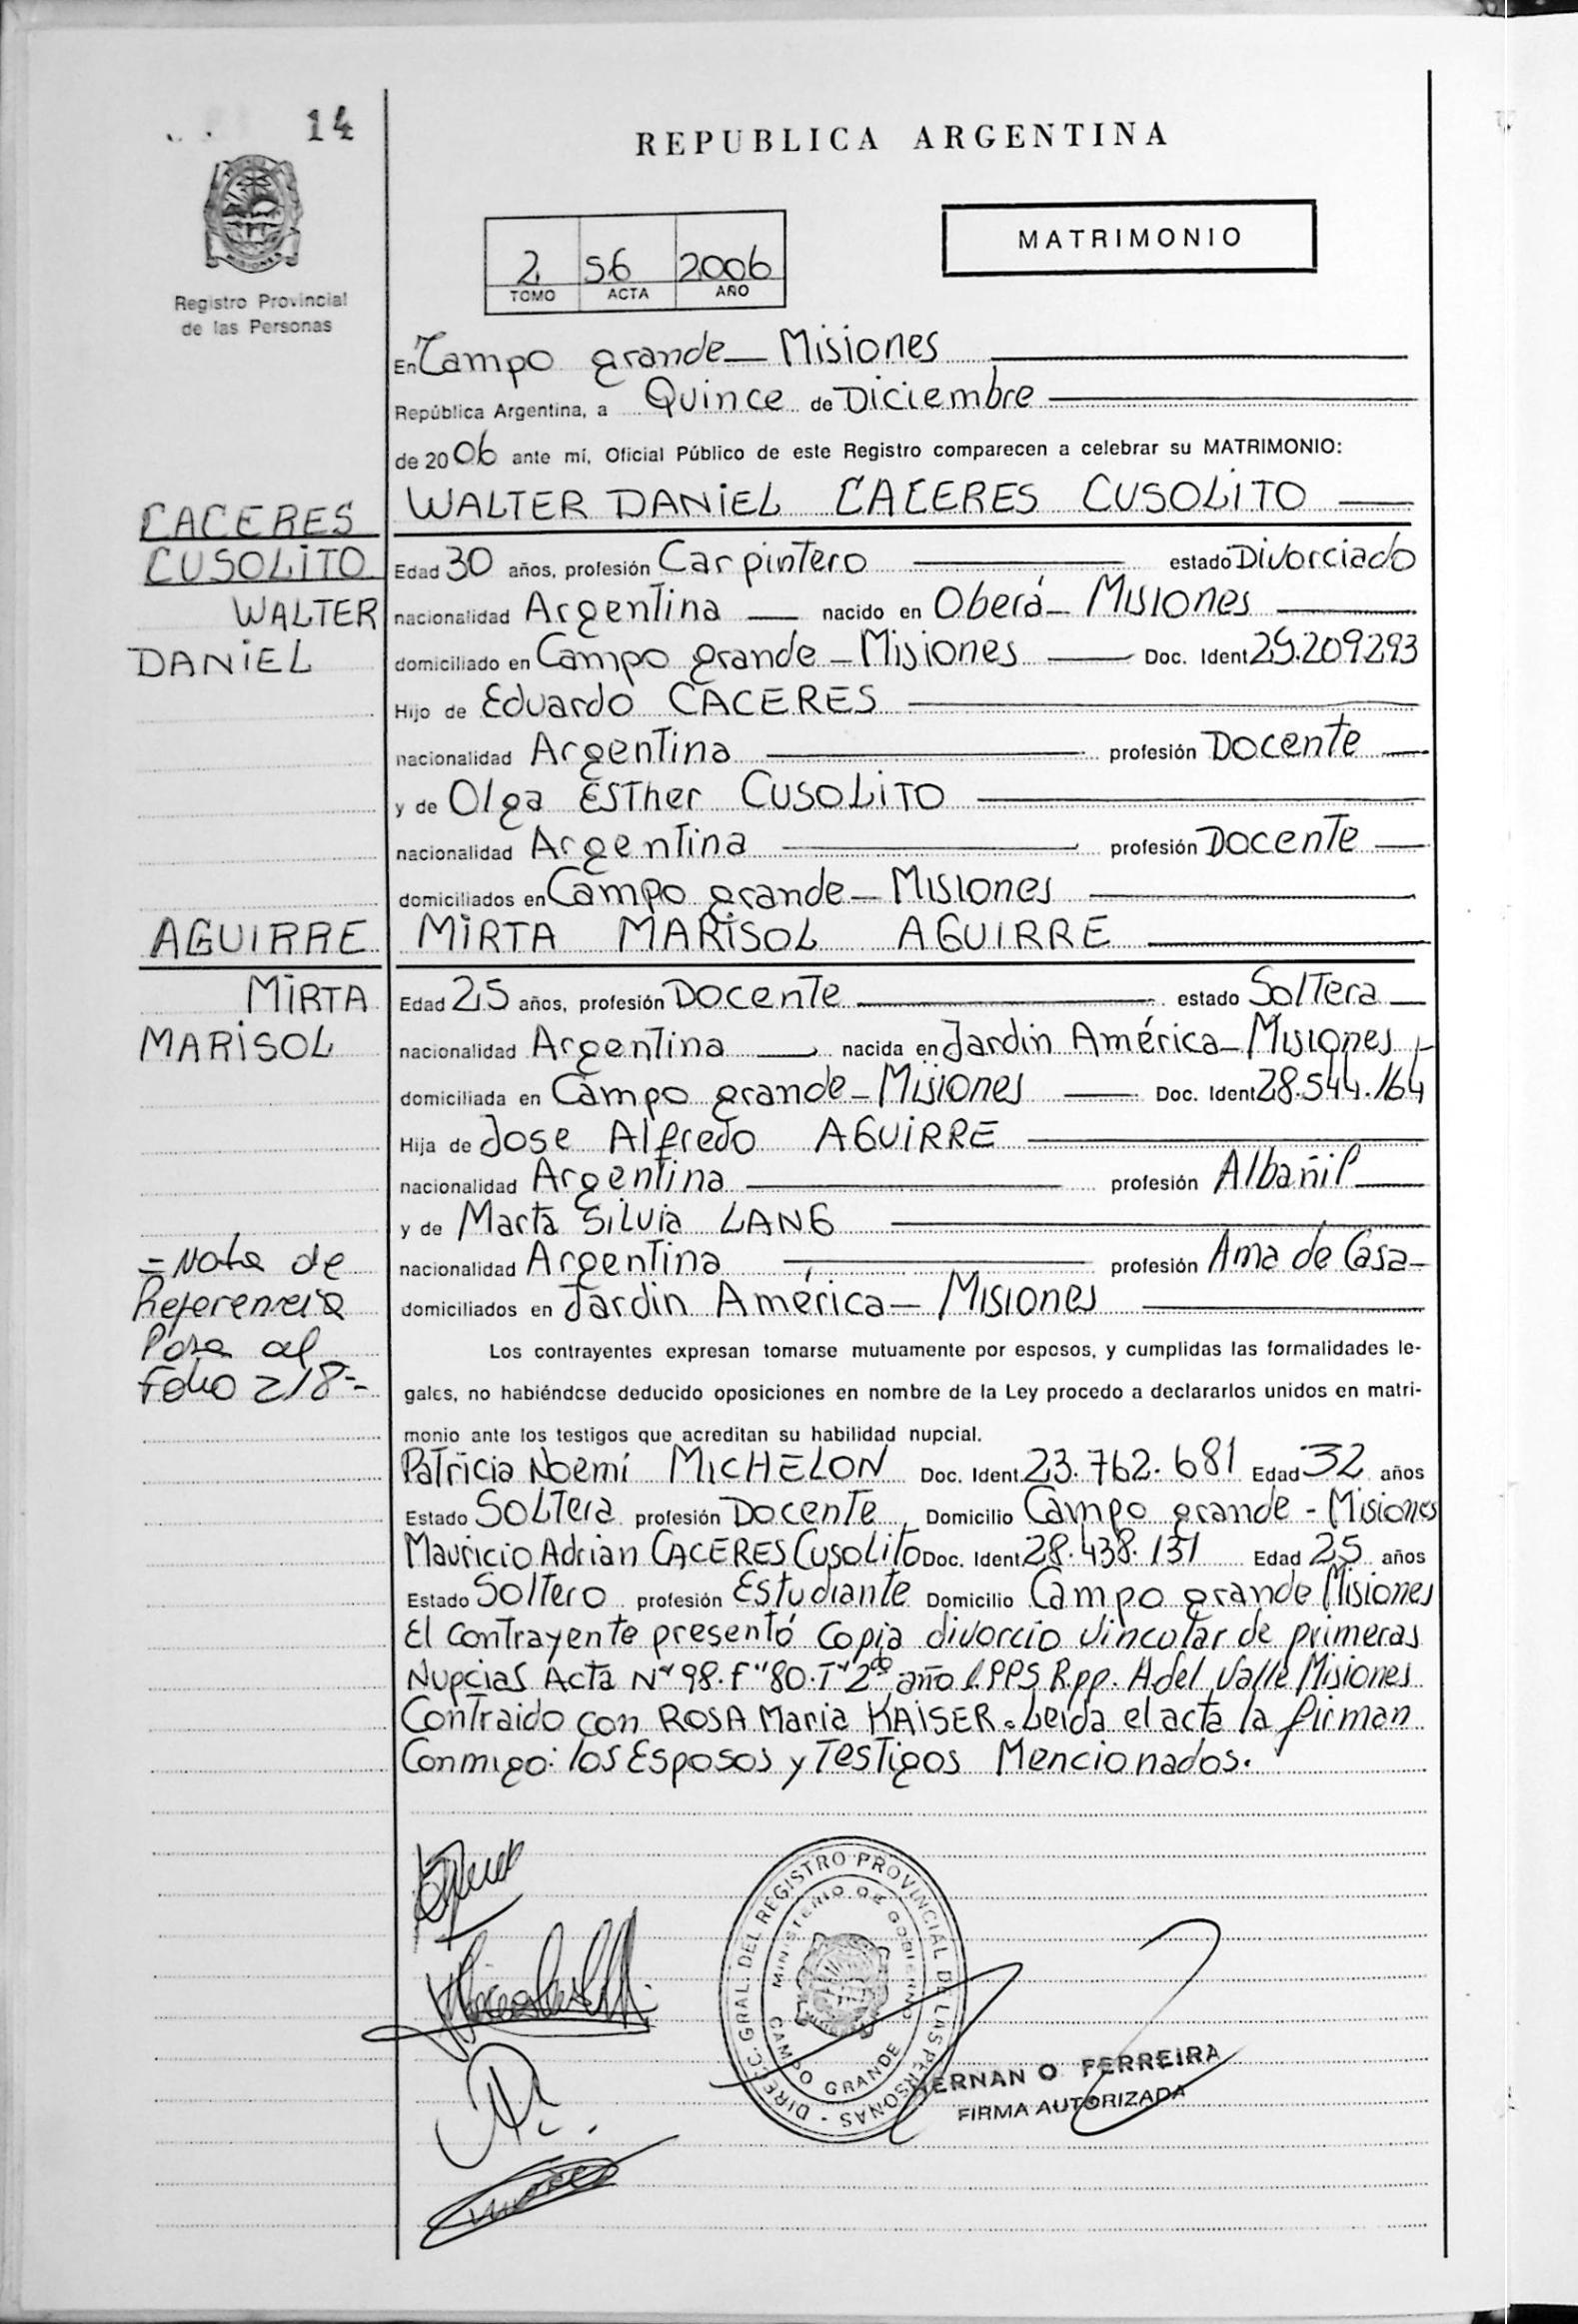 14
REPUBLICA ARGENTINA
MATRIMONIO
2 56 2006
TOMO ACTA AÑO
Registro Provincial
de las Personas
En Campo grande – Misiones
República Argentina, a Quince de Diciembre
de 2006 ante mí, Oficial Público de este Registro comparecen a celebrar su MATRIMONIO:
CACERES
CUSOLITO
WALTER
DANIEL
WALTER DANIEL CACERES CUSOLITO
Edad 30 años, profesión Carpintero estado Divorciado
nacionalidad Argentina nacido en Oberá – Misiones
domiciliado en Campo grande – Misiones Doc. Ident 25.209.293
Hijo de Eduardo CACERES
nacionalidad Argentina profesión Docente
y de Olga Esther CUSOLITO
nacionalidad Argentina profesión Docente
domiciliados en Campo grande – Misiones
AGUIRRE
MIRTA
MARISOL
MIRTA MARISOL AGUIRRE
Edad 25 años, profesión Docente estado Soltera
nacionalidad Argentina nacida en Jardin América – Misiones
domiciliada en Campo grande – Misiones Doc. Ident 28.544.164
Hija de Jose Alfredo AGUIRRE
nacionalidad Argentina profesión Albañil
y de Marta Silvia LANG
nacionalidad Argentina profesión Ama de Casa
domiciliados en Jardin América – Misiones
= Nota de
Referencia
Pasa al
Folio 218 =
Los contrayentes expresan tomarse mutuamente por esposos, y cumplidas las formalidades le-
gales, no habiéndose deducido oposiciones en nombre de la Ley procedo a declararlos unidos en matri-
monio ante los testigos que acreditan su habilidad nupcial.
Patricia Noemi MICHELON Doc. Ident. 23.762.681 Edad 32 años
Estado Soltera profesión Docente Domicilio Campo grande - Misiones
Mauricio Adrian CACERES Cusolito Doc. Ident 28.438.131 Edad 25 años
Estado Soltero profesión Estudiante Domicilio Campo grande Misiones
El contrayente presentó copia divorcio vincular de primeras
Nupcias Acta Nº 98. Fº 80. Tº 2do año R.pp. A del Valle Misiones
Contraido con ROSA Maria KAISER. Leida el acta la firman
Conmigo: los Esposos y Testigos Mencionados.
DIREC. GRAL. DEL REGISTRO PROVINCIAL DE LAS PERSONAS
MINISTERIO DE GOBIERNO
CAMPO GRANDE
HERNAN O FERREIRA
FIRMA AUTORIZADA